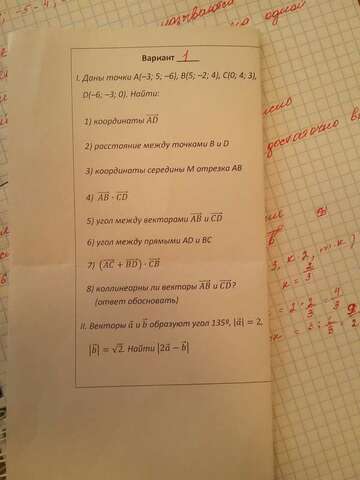 , -5 -4,
называются
на одной
Вариант 1
I. Даны точки A(–3; 5; –6), B(5; –2; 4), C(0; 4; 3),
D(–6; –3; 0). Найти:
1) координаты \overline{AD}
2) расстояние между точками B и D
3) координаты середины M отрезка AB
4) \overline{AB} · \overline{CD}
5) угол между векторами \overline{AB} и \overline{CD}
6) угол между прямыми AD и BC
7) (\overline{AC} + \overline{BD}) · \overline{CB}
8) коллинеарны ли векторы \overline{AB} и \overline{CD}?
(ответ обосновать)
II. Векторы \vec{a} и \vec{b} образуют угол 135º, |\vec{a}| = 2,
|\vec{b}| = √2. Найти |2\vec{a} – \vec{b}|
достаточно